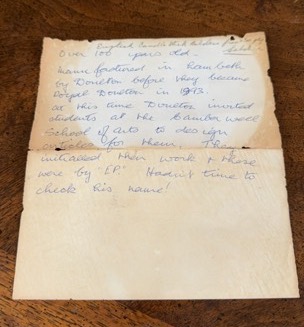 English Candle Stick Holders
Over 100 years old.
Manufactured in Lambeth
by Doulton before they became
Royal Doulton in 1993.
at this time Doulton invited
students at the Camberwell
School of Arts to design
articles for them. They
initialled their work & these
were by "EP" Hadn't time to
check his name!